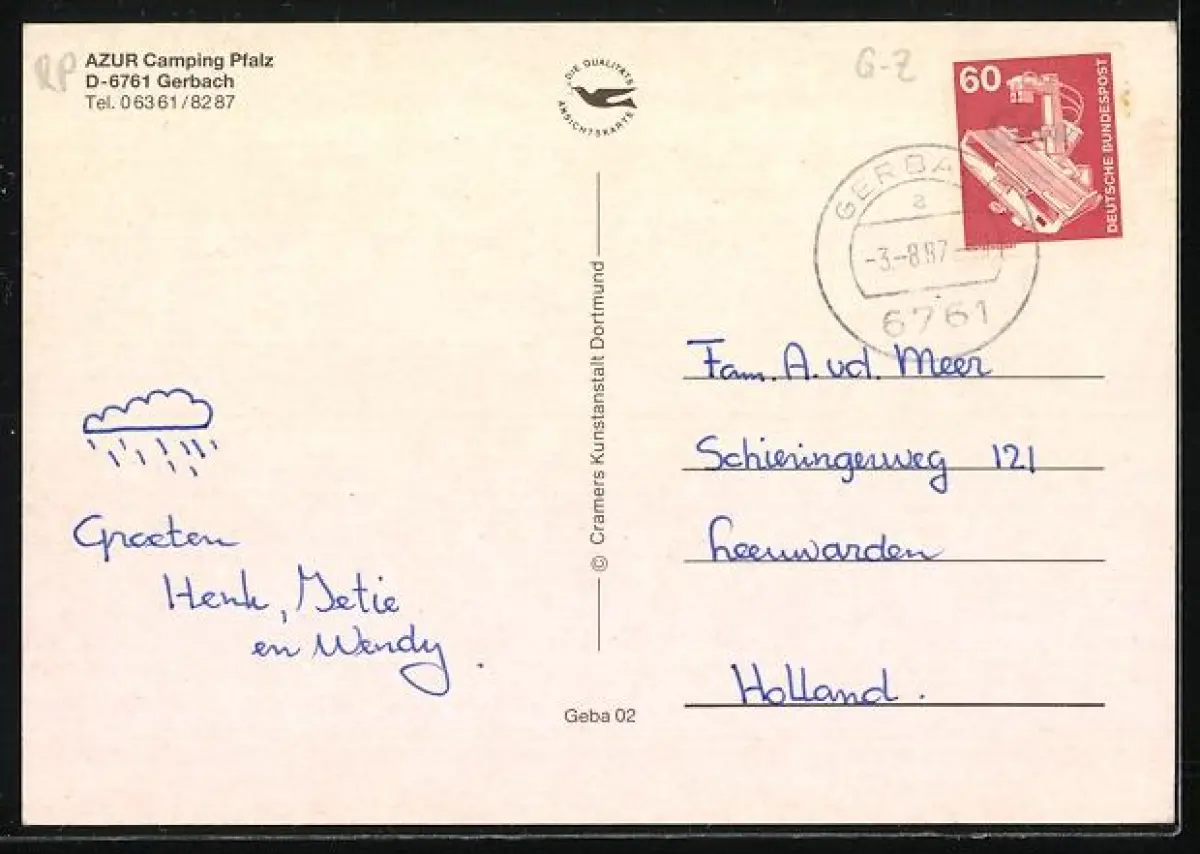 RP
AZUR Camping Pfalz
D-6761 Gerbach
Tel. 06361/8287
DIE QUALITÄTS
ANSICHTSKARTE
G-Z
60
DEUTSCHE BUNDESPOST
GERBA
a
-3.-8.87
6761
© Cramers Kunstanstalt Dortmund
Fam. A. vd. Meer
Schieringerweg 121
Leeuwarden
Holland.
Groeten
Henk, Jetie
en Wendy.
Geba 02